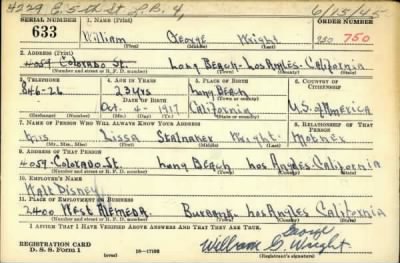 4229 E. 5th St L.B. 4, 6/15/45
SERIAL NUMBER 1. NAME (Print) ORDER NUMBER
633 William George Wright 750
(First) (Middle) (Last)
2. ADDRESS (Print)
4059 Colorado St. Long Beach - Los Angles - California
(Number and street or R. F. D. number) (Town) (County) (State)
3. TELEPHONE 4. AGE IN YEARS 5. PLACE OF BIRTH 6. COUNTRY OF CITIZENSHIP
846-26 23 yrs Long Beach
DATE OF BIRTH (Town or county)
Oct - 4 - 1917 California U.S. of America
(Exchange) (Number) (Mo.) (Day) (Yr.) (State or country)
7. NAME OF PERSON WHO WILL ALWAYS KNOW YOUR ADDRESS 8. RELATIONSHIP OF THAT PERSON
Stalnaker Wright Mother
(Mr., Mrs., Miss) (First) (Middle) (Last)
9. ADDRESS OF THAT PERSON
4059 - Colorado St. Long Beach Los Angles - California
(Number and street or R. F. D. number) (Town) (County) (State)
10. EMPLOYER'S NAME
Walt Disney
11. PLACE OF EMPLOYMENT OR BUSINESS
2400 West Alemeda Burbank Los Angles California
(Number and street or R. F. D. number) (Town) (County) (State)
I AFFIRM THAT I HAVE VERIFIED ABOVE ANSWERS AND THAT THEY ARE TRUE.
George
REGISTRATION CARD William G. Wright
D. S. S. Form 1 (over) 16-17105 (Registrant's signature)